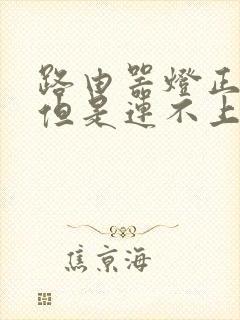 路由器燈正
但是連不上
焦京海